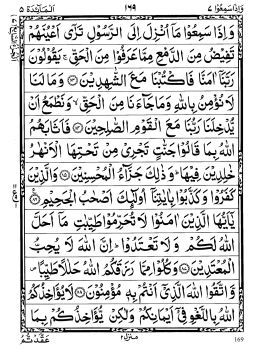 وَاِذَا سَمِعُوْا ٧
١٦٩
اَلْمَآئِدَة ٥
وَ اِذَا سَمِعُوْا مَاۤ اُنْزِلَ اِلَى الرَّسُوْلِ تَرٰۤى اَعْيُنَهُمْ
تَفِيْضُ مِنَ الدَّمْعِ مِمَّا عَرَفُوْا مِنَ الْحَقِّ ۚ يَقُوْلُوْنَ
رَبَّنَاۤ اٰمَنَّا فَاكْتُبْنَا مَعَ الشّٰهِدِيْنَ ۝ وَ مَا لَنَا
لَا نُؤْمِنُ بِاللّٰهِ وَمَا جَآءَنَا مِنَ الْحَقِّ ۙ وَ نَطْمَعُ اَنْ
يُّدْخِلَنَا رَبُّنَا مَعَ الْقَوْمِ الصّٰلِحِيْنَ ۝ فَاَثَابَهُمُ
اللّٰهُ بِمَا قَالُوْا جَنّٰتٍ تَجْرِيْ مِنْ تَحْتِهَا الْاَنْهٰرُ
خٰلِدِيْنَ فِيْهَا ؕ وَ ذٰلِكَ جَزَآءُ الْمُحْسِنِيْنَ ۝ وَ الَّذِيْنَ
كَفَرُوْا وَ كَذَّبُوْا بِاٰيٰتِنَاۤ اُولٰٓئِكَ اَصْحٰبُ الْجَحِيْمِ ۝
يٰۤاَيُّهَا الَّذِيْنَ اٰمَنُوْا لَا تُحَرِّمُوْا طَيِّبٰتِ مَاۤ اَحَلَّ
اللّٰهُ لَكُمْ وَ لَا تَعْتَدُوْا ؕ اِنَّ اللّٰهَ لَا يُحِبُّ
الْمُعْتَدِيْنَ ۝ وَ كُلُوْا مِمَّا رَزَقَكُمُ اللّٰهُ حَلٰلًا طَيِّبًا ۪
وَّ اتَّقُوا اللّٰهَ الَّذِيْۤ اَنْتُمْ بِهٖ مُؤْمِنُوْنَ ۝ لَا يُؤَاخِذُكُمُ
اللّٰهُ بِاللَّغْوِ فِيْۤ اَيْمَانِكُمْ وَ لٰكِنْ يُّؤَاخِذُكُمْ بِمَا
عَقَّدْتُّمُ
منزل ٢
169